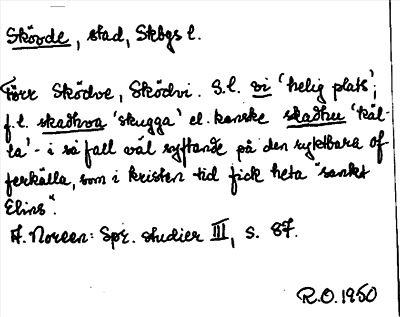 Skövde, stad, Skbgs l.
Förr Sködve, Sködvi. S.l. vi 'helig plats';
f.l. skadhva 'skugga' el. kanske skadhu 'käl-
la' - i så fall väl syftande på den ryktbara of
ferkälla, som i kristen tid fick heta "sankt
Elins".
A. Noreen: Spr. studier III, s. 87.
R.O. 1950